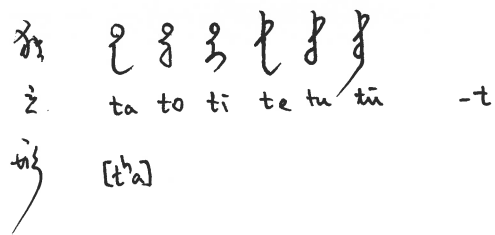 独立形
ta to ti te tu tū -t
[tʰa]